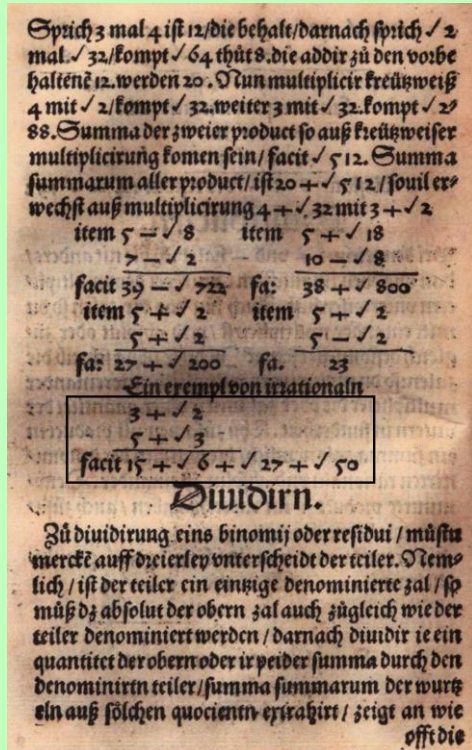 Sprich 3 mal 4 ist 12/die behalt/darnach sprich √ 2
mal √ 32/kompt √ 64 thůt 8. die addir zů den vorbe
haltenē 12. werden 20. Nun multiplicir kreützweiß
4 mit √ 2/kompt √ 32. weiter 3 mit √ 32. kompt √ 2⸗
88. Summa der zweier product so auß kreützweiser
multiplicirung komen sein/ facit √ 512. Summa
summarum aller product/ ist 20 + √ 512/souil er⸗
wechst auß multiplicirung 4 + √ 32 mit 3 + √ 2
item 5 − √ 8 item 5 + √ 18
7 − √ 2 10 − √ 8
facit 39 − √ 722 fa: 38 + √ 800
item 5 + √ 2 item 5 + √ 2
5 + √ 2 5 − √ 2
fa: 27 + √ 200 fa. 23
Ein exempl von irrationaln
3 + √ 2
5 + √ 3
facit 15 + √ 6 + √ 27 + √ 50
Diuidirn.
Zů diuidirung eins binomij oder residui / můstu
merckē auff dreierley vnterscheidt der teiler. Nem⸗
lich / ist der teiler ein eintzige denominierte zal / so
můß dz absolut der obern zal auch zůgleich wie der
teiler denominiert werden / darnach diuidir ie ein
quantitet der obern oder ir peider summa durch den
denominirtn teiler/summa summarum der wurtz
eln auß sölchen quocientn extrahirt / zeigt an wie
offt die